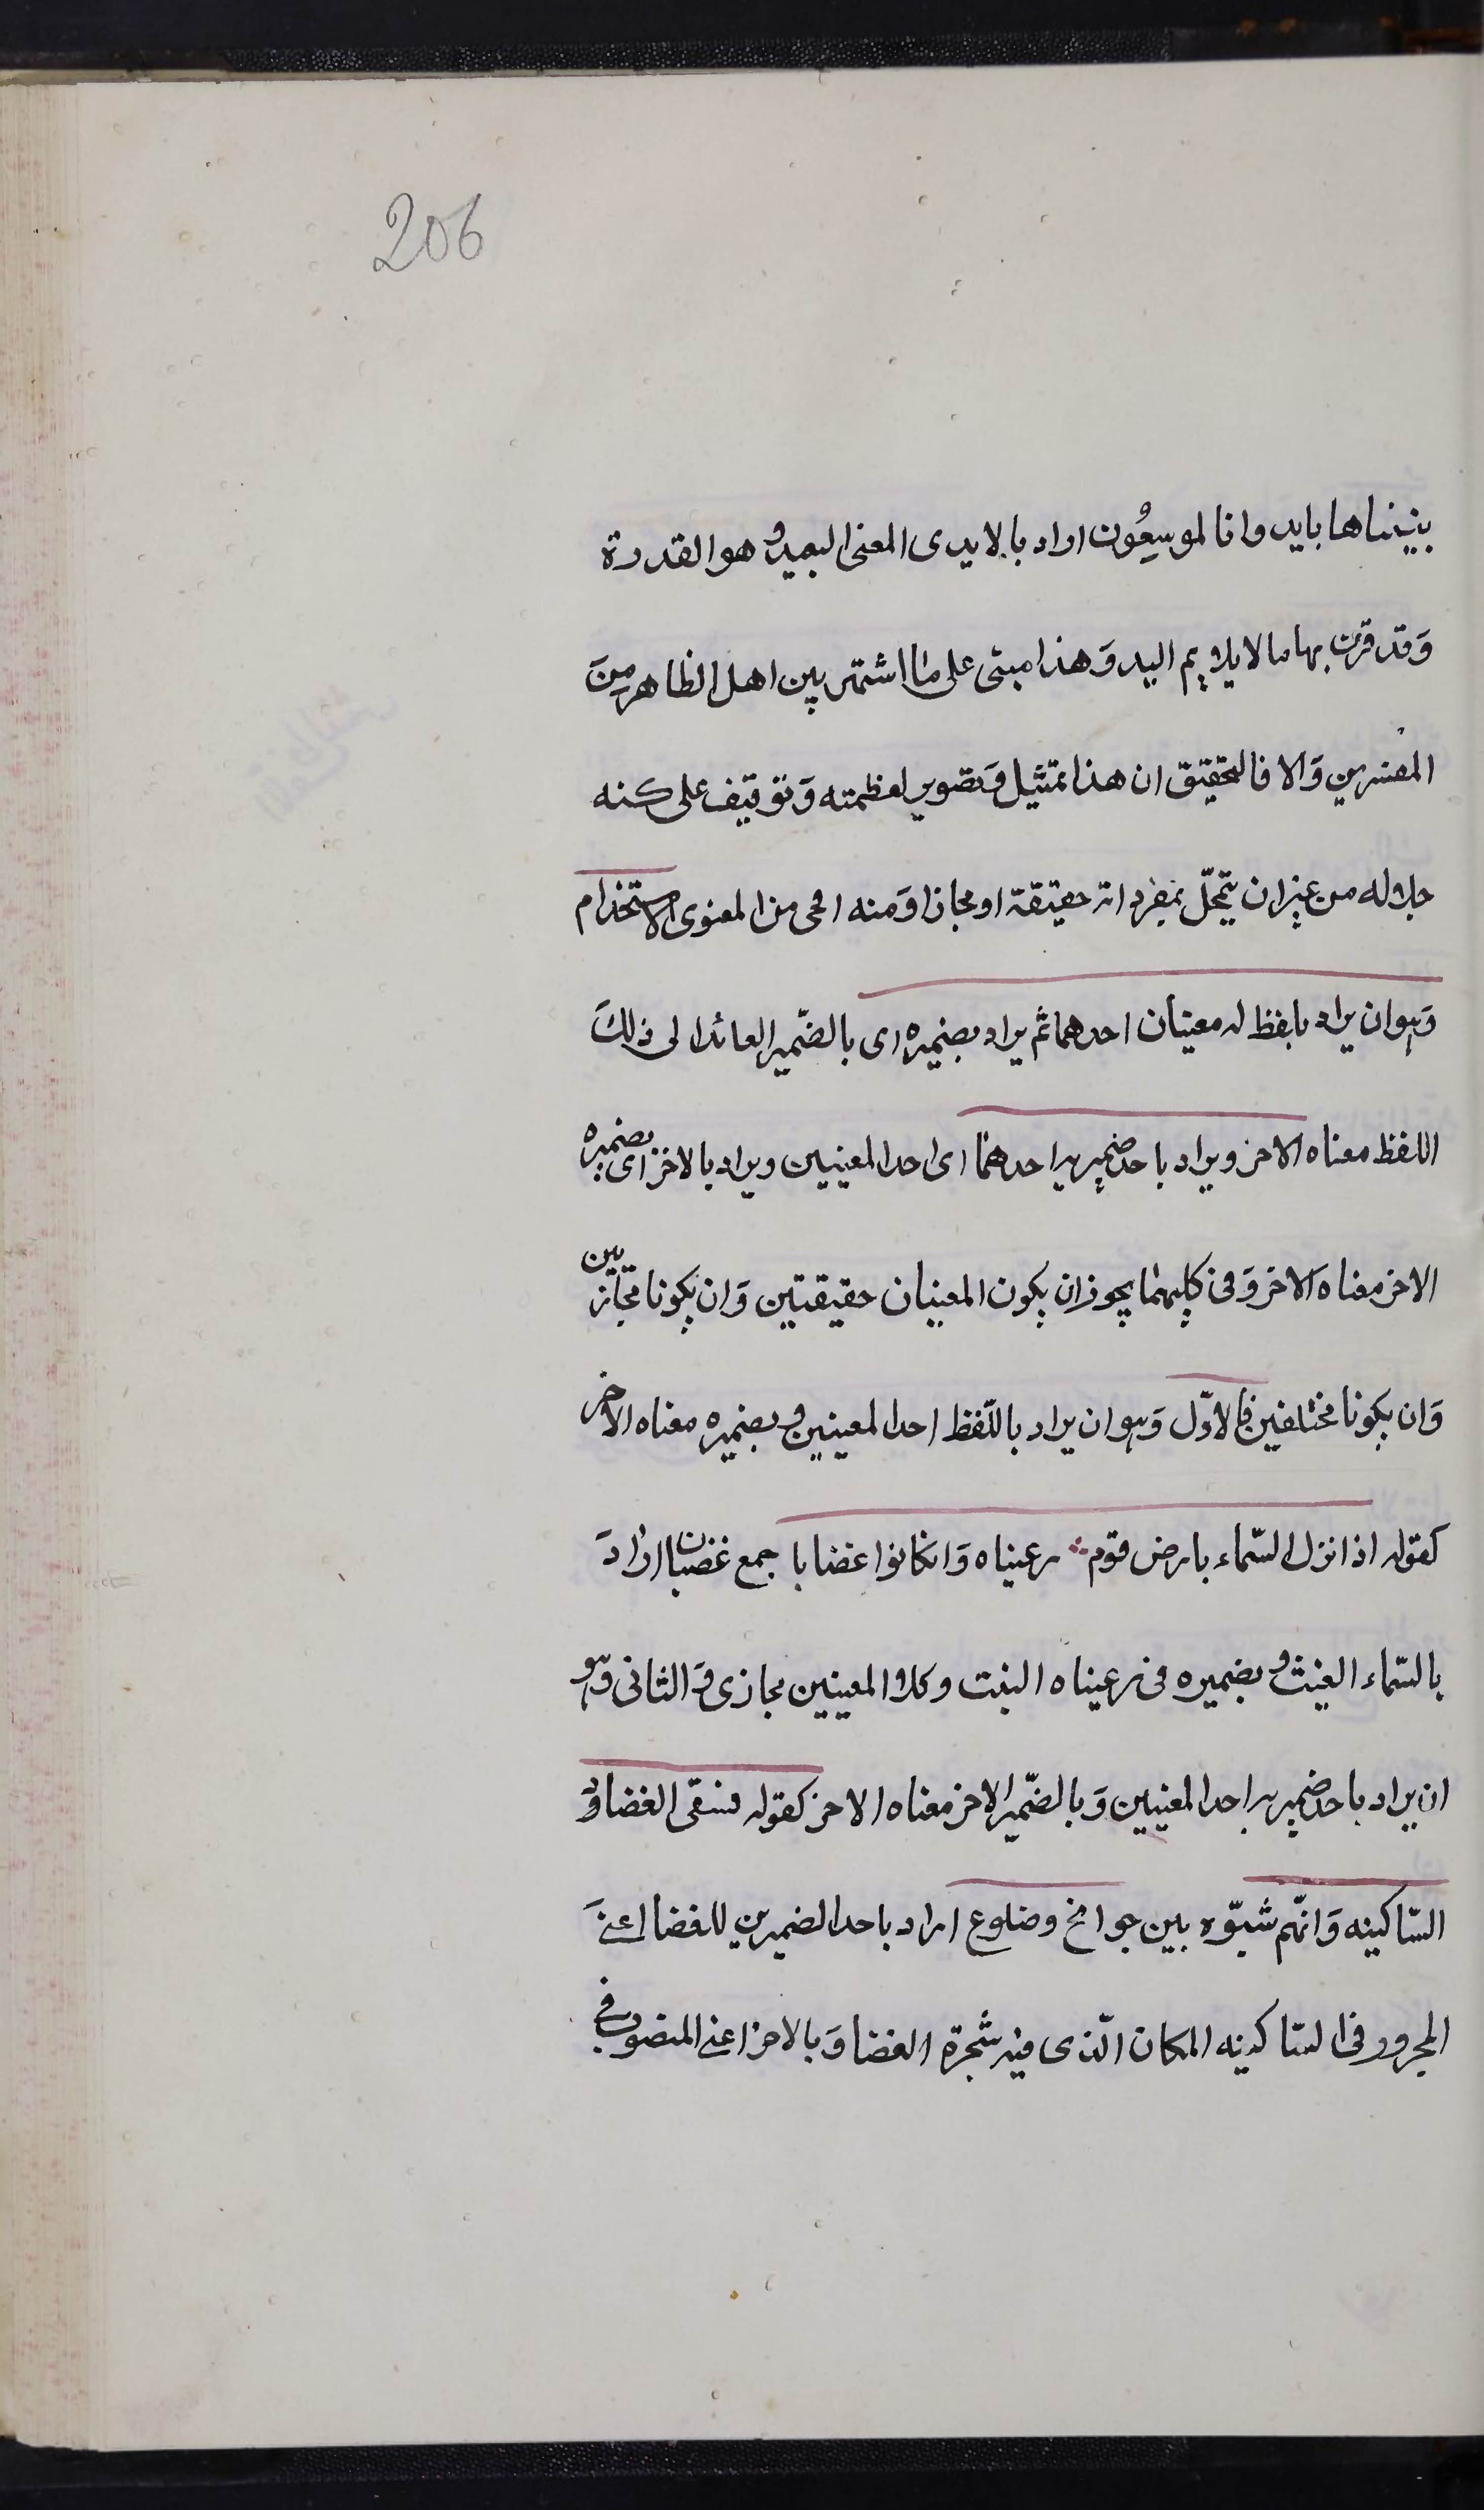 206
بنيناها بايد وانا لموسعُون اراد بالايدى المعنى البعيد وهو القدرة
وَقد قرن بها ما لا يلايم اليد وَهذا مبنى على ما اشتهر بين اهل الظاهر مِنَ
المفسرين وَالا فالتحقيق ان هذا تمثيل وَتصوير لعظمته وَتوقيف على كنه
جلاله من غير ان يتمحّل بمفرداته حقيقة او مجازا وَمنه اى من المعنوى الاستخدام
وَهو ان يراد بلفظ له معنيان احدهما ثم يراد بضميره اى بالضّمير العائد الى ذلكَ
اللفظ معناه الاخر ويراد باحد ضميريه احدهما اى احد المعنيين ويراد بالاخر اى بضميره
الاخر معناه الاخر وَفى كليهما يجوز ان يكون المعنيان حقيقتين وَان يكونا مجازيين
وَان يكونا مختلفين فالاوّل وَهو ان يراد باللّفظ احد المعنيين وبضميره معناه الاخر
كقوله اذا نزل السّماء بارض قوم ؞ رعيناه وَانكانوا غضابا جمع غضبان ارادَ
بالسّماء الغيث وبضميره فى رعيناه النبت وكلا المعنيين مجازى وَالثانى وَهو
ان يراد باحد ضميريه احد المعنيين وَبالضّمير الاخر معناه الاخر كقوله فسقى الغضا وَ
السّاكينه وَانهّم شبّوه بين جوانح وضلوع اراد باحد الضميرين للغضا اعنىَ
المجرور فى السّاكينه المكان الّذى فيه شجرة الغضا وَبالاخر اعنى المنصوب فى